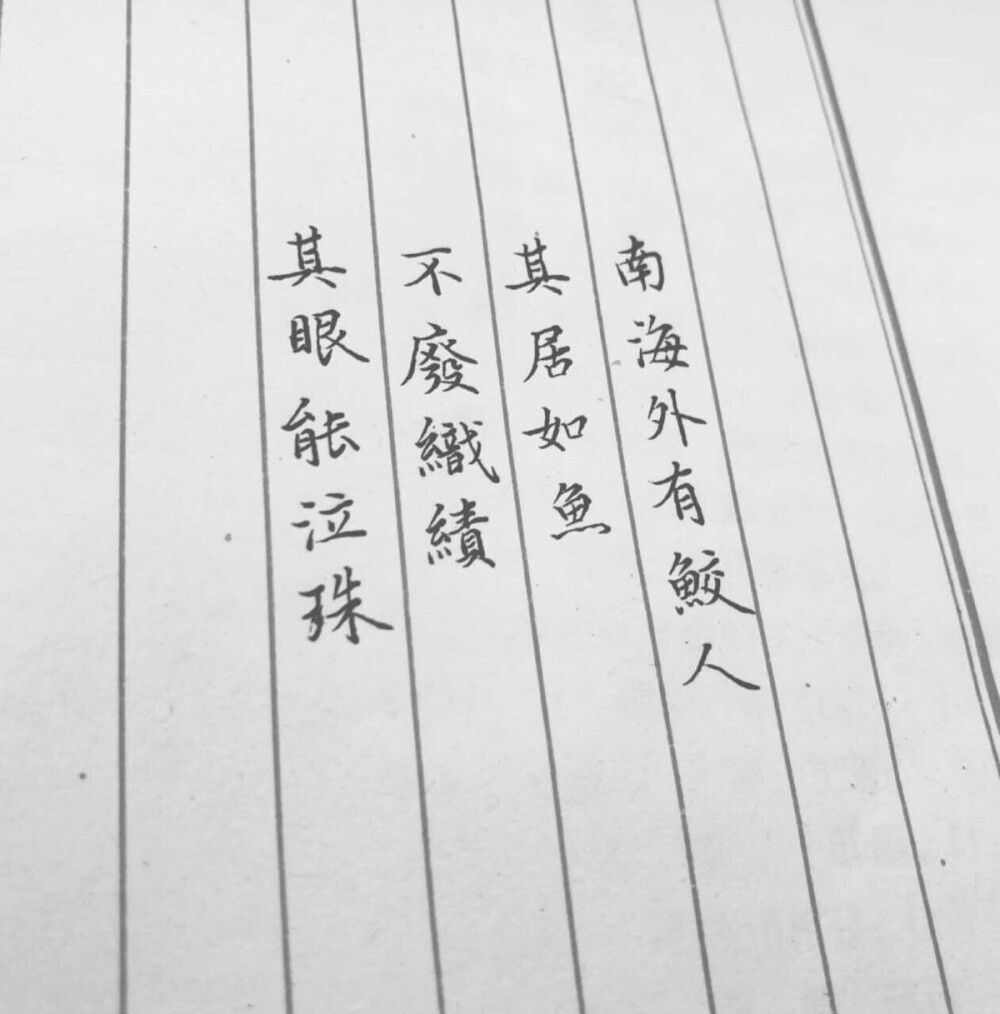 南海外有鮫人
其居如魚
不廢織績
其眼能泣珠